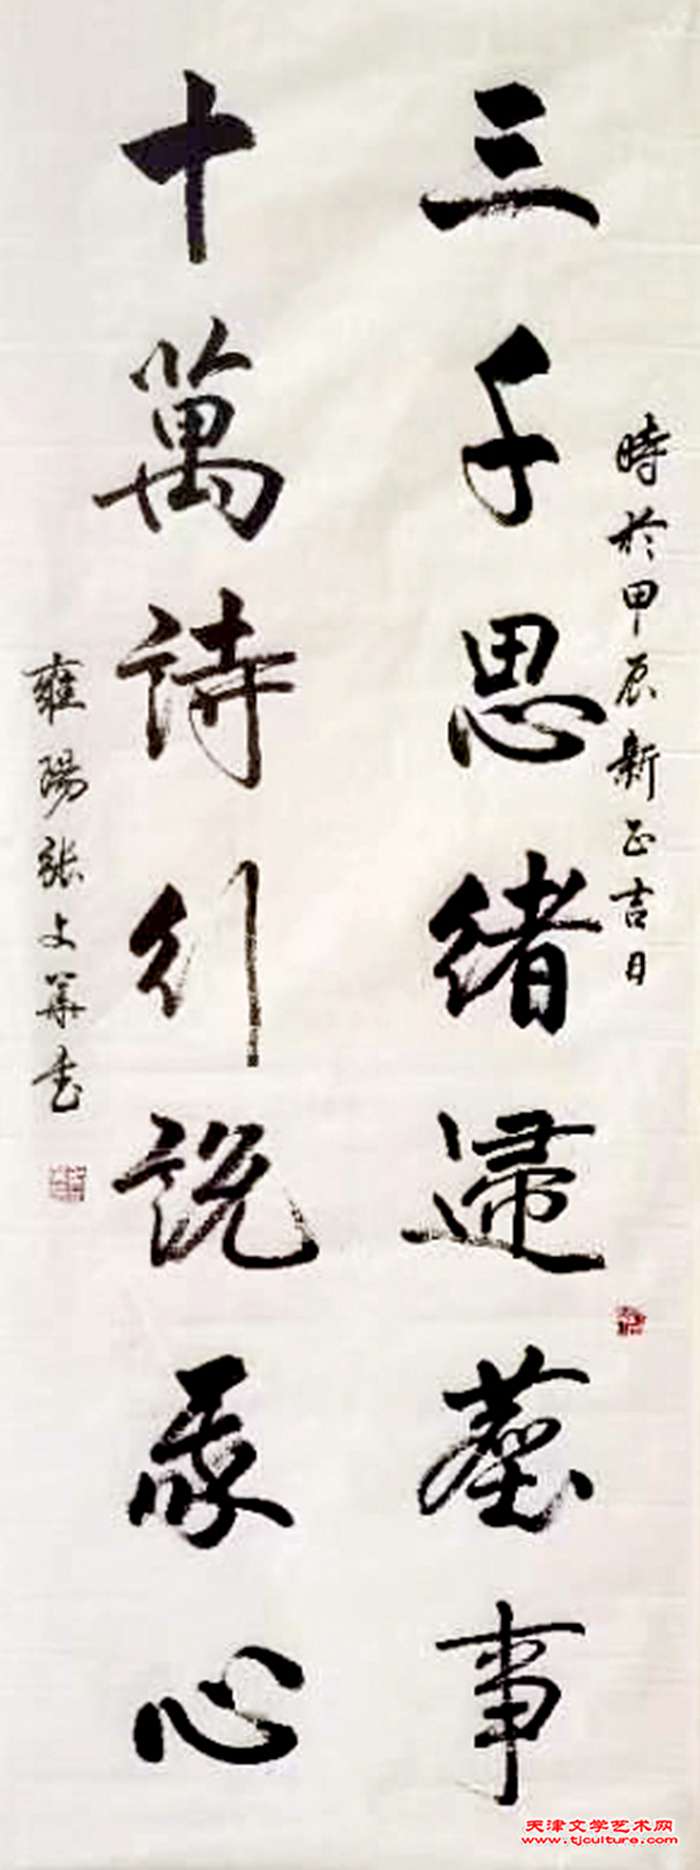 時於甲辰新正吉日
三千思緒歸塵事
十萬詩行説心
雍陽張文華書
天津文学艺术网
www.tjculture.com